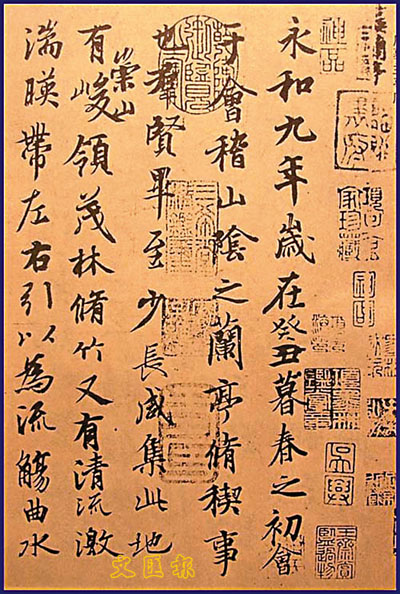 永和九年歲在癸丑暮春之初會
于會稽山陰之蘭亭脩稧事
也羣賢畢至少長咸集此地
有崇山峻領茂林脩竹又有清流激
湍暎帶左右引以為流觴曲水
神品
吳興
文匯報